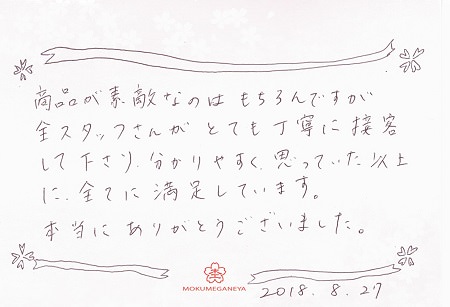 商品が素敵なのはもちろんですが
全スタッフさんがとても丁寧に接客
して下さり、分かりやすく、思っていた以上
に、全てに満足しています。
本当にありがとうございました。
MOKUMEGANEYA
2018.8.27